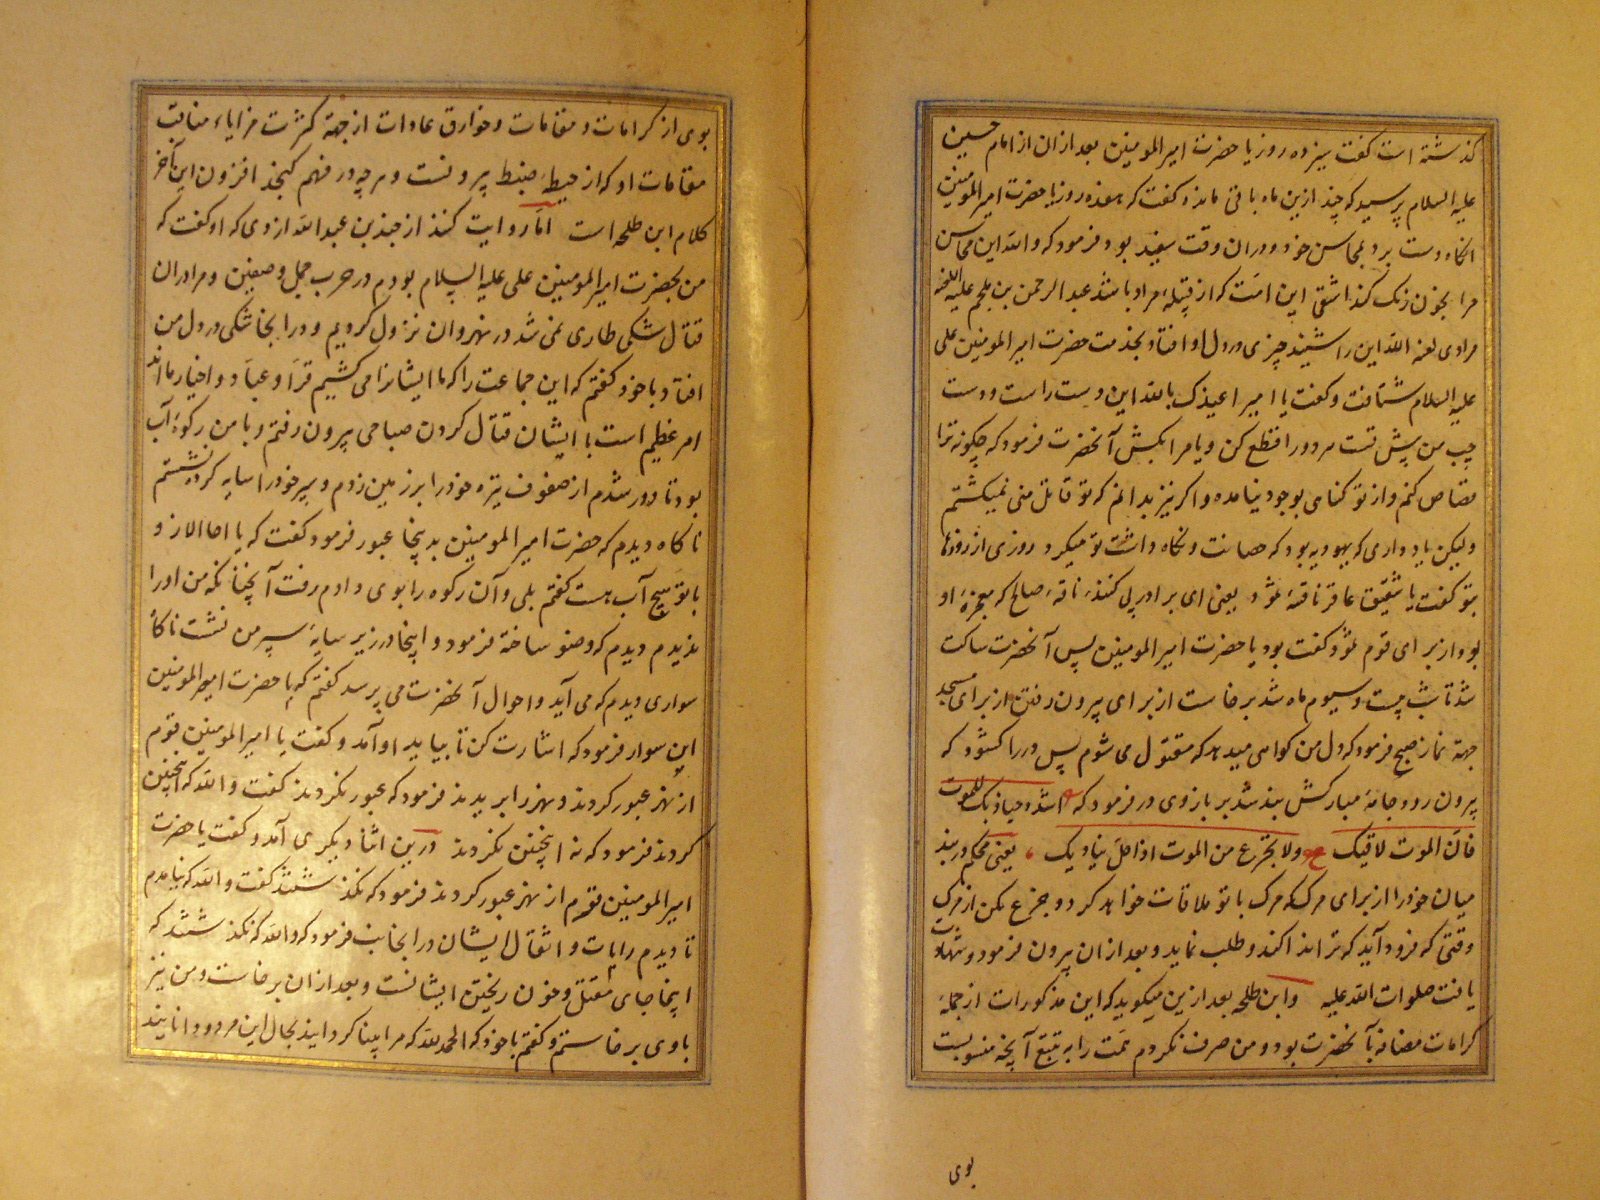 گذشته است گفت سیزده روز یا حضرت امیرالمومنین بعد ازان از امام حسین
علیه السلام پرسید که چند ازین ماه باقی مانده گفت که هفده روز یا حضرت امیرالمومنین
انگاه دست برد بمحاسن خود و دران وقت سفید بود فرمود که والله این محاسن
مرا بخون رنک کند اشقی این امت که از قبیله مراد باشد عبدالرحمن بن ملجم علیه اللعنه
مرادی لعنه الله این را شنید چیزی در دل او افتاد بخدمت حضرت امیرالمومنین علی
علیه السلام شتافت و گفت یا امیر اعیذک بالله این دست راست و دست
چپ من پیش تست هر دو را قطع کن و یا مرا بکش آنحضرت فرمود که چگونه ترا
قصاص کنم و از تو گناهی بوجود نیامده و اگر نیز بدانم که تو قاتل منی نمیکشتم
ولیکن یاد داری که یهودیه بود که حضانت و نگاه داشت تو میکرد روزی از روزها
بتو گفت یا شقیق عاقر ناقة ثمود یعنی ای برادر پی کننده ناقه صالح که معجزه او
بود از برای قوم ثمود گفت بود یا حضرت امیرالمومنین پس آنحضرت ساکت
شد تا شب بیست و سیوم ماه شد برخاست از برای بیرون رفتن از برای مسجد
جهة نماز صبح فرمود که دل من گواهی میدهد که مقتول می شوم پس در را کشود که
بیرون رود جامه مبارکش بند شد بر بازوی در فرمود که اشدد حیازیک للموت
فان الموت لاقیک ولا تجزع من الموت اذا حل بنادیک یعنی محکم در بند
میان خود را از برای مرک که مرک با تو ملاقات خواهد کرد و جزع مکن از مرک
وقتی که فرود آید که ترا ندا کند و طلب نماید و بعد ازان بیرون فرمود و شهادت
یافت صلوات الله علیه وابن طلحه بعد ازین میکوید که این مذکورات از جمله
کرامات مضافه بآنحضرت بود و من صرف نکردم همت را به تتبع آنچه منسوبست
بوی
بوی از کرامات و مقامات و خوارق عادات از جهة کثرت مزایاء مناقب
مقامات او که از حیطه ضبط بیرونست و هرچه در فهم کنجد افزون این آخر
کلام ابن طلحه است اما روایت کنند از جندبن عبدالله ازدی که او گفت که
من بحضرت امیرالمومنین علی علیه السلام بودم در حرب جمل و صفین و مرا دران
قتال شکی طاری نمی شد در نهروان نزول کردیم و در انجا شکی در دل من
افتاد و با خود گفتم که این جماعت را که ما ایشانرا می کشیم قرّا و عبّاد و اخیار ما اند
امر عظیم است با ایشان قتال کردن صباحی بیرون رفتم و با من رکوه آب
بود تا دور شدم از صفوف نیزه خود را بر زمین زدم و سپر خود را سایه کرده نشستم
ناگاه دیدم که حضرت امیرالمومنین بدینجا عبور فرمود گفت که یا اخا الازد
با تو هیچ آب هست گفتم بلی و آن رکوه را بوی دادم رفت آنچنانکه من او را
ندیدم دیدم که وضو ساخته فرمود و اینجا در زیر سایه سپر من نشست ناگاه
سواری دیدم که می آید و احوال آنحضرت می پرسد گفتم که یا حضرت امیرالمومنین
این سوار فرمود که اشارت کن تا بیاید او آمد و گفت یا امیرالمومنین قوم
از نهر عبور کردند و نهر را بریدند فرمود که عبور نکردند گفت والله که اینچنین
کردند فرمود که نه اینچنین نکردند درین اثنا دیگری آمد و گفت یا حضرت
امیرالمومنین قوم از نهر عبور کردند فرمود که نگذشتند گفت والله که نیامدم
تا دیدم رایات و اثقال ایشان در انجانب فرمود که والله که نگذشتند که
اینجا جای مقتل و خون ریختن ایشانست و بعد ازان برخاست و من نیز
با وی برخاستم و گفتم با خود که الحمدلله که مرا بینا گردانید بحال این مرد و دانایند